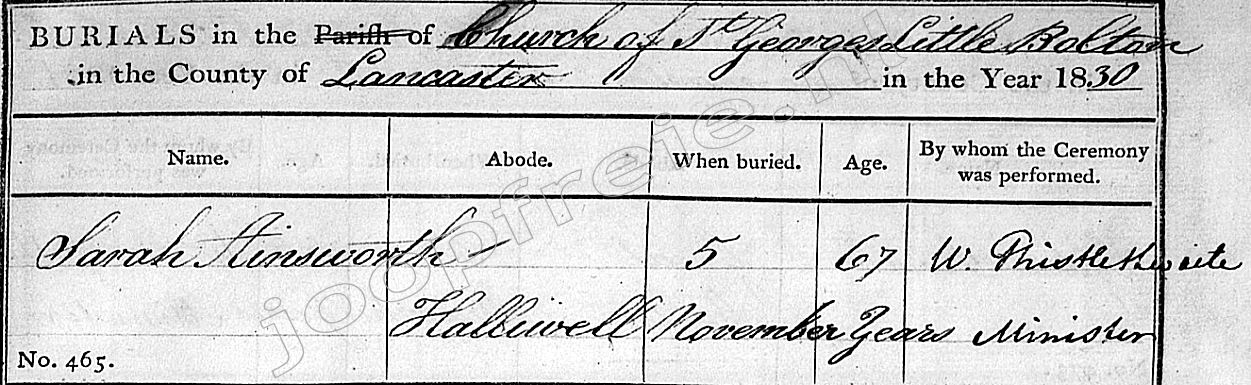 BURIALS in the Parish of Church of St Georges Little Bolton
in the County of Lancaster in the Year 1830
Name. Abode. When buried. Age. By whom the Ceremony was performed.
Sarah Ainsworth 5 67 W. Thistlethwaite
Halliwell November Years Minister
No. 465.
joopfreie.nl